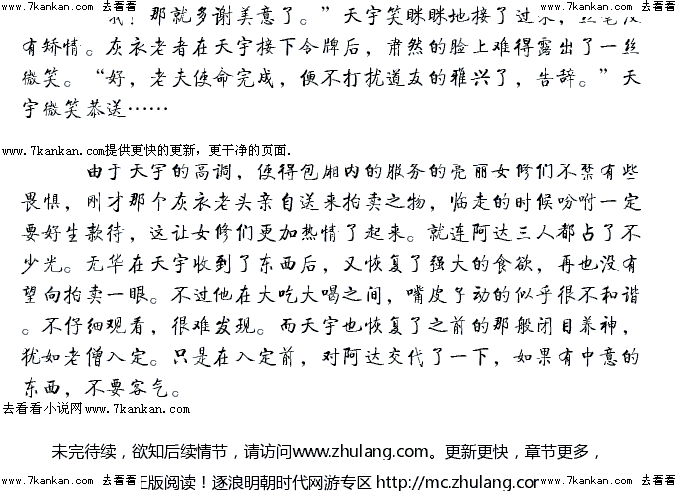 www.7kankan.com 去看看 www.7kankan.com 去看看
那就多谢美意了。”天宇笑眯眯地接了过来，丝毫没
有矫情。灰衣老者在天宇接下令牌后，肃然的脸上难得露出了一丝
微笑。“好，老夫使命完成，便不打扰道友的雅兴了，告辞。”天
宇微笑恭送……
www.7kankan.com提供更快的更新，更干净的页面.
由于天宇的高调，使得包厢内的服务的亮丽女修们不禁有些
畏惧，刚才那个灰衣老头亲自送来拍卖之物，临走的时候吩咐一定
要好生款待，这让女修们更加热情了起来。就连阿达三人都占了不
少光。无华在天宇收到了东西后，又恢复了强大的食欲，再也没有
望向拍卖一眼。不过他在大吃大喝之间，嘴皮子动的似乎很不和谐
。不仔细观看，很难发现。而天宇也恢复了之前的那般闭目养神，
犹如老僧入定。只是在入定前，对阿达交代了一下，如果有中意的
东西，不要客气。
去看看小说网www.7kankan.com
未完待续，欲知后续情节，请访问www.zhulang.com。更新更快，章节更多，
www.7kankan.com 去看看 正版阅读！逐浪明朝时代网游专区 http://mc.zhulang.com www.7kankan.com 去看看